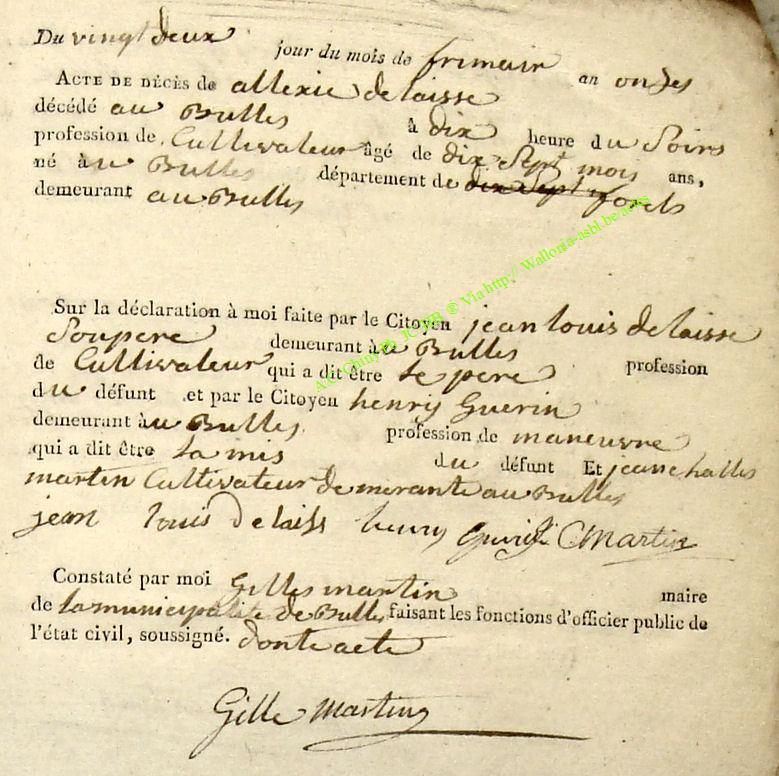 Du vingt deux jour du mois de frimair an onzes
ACTE DE DÉCÈS de allexie delaisse
décédé au Bulles à dix heure du Soirs
profession de Cultivateur âgé de dix Sept mois ans,
né à u Bulles département de dix Sept forets
demeurant au Bulles
Sur la déclaration à moi faite par le Citoyen jean louis delaisse
Soupere demeurant à u Bulles profession
de Cultivateur qui a dit être le pere
du défunt et par le Citoyen henry Guerin
demeurant à u Bulles profession de maneuvre
qui a dit être La mis du défunt Et jean challes
martin Cultivateur demerante au Bulles
jean louis Delaiss henry C Martin
Constaté par moi Gilles martin maire
de La municipalite de Bulles faisant les fonctions d'officier public de
l'état civil, soussigné. donte acte
Gille Martin
Via http:/ Wallonia-asbl.be/actes